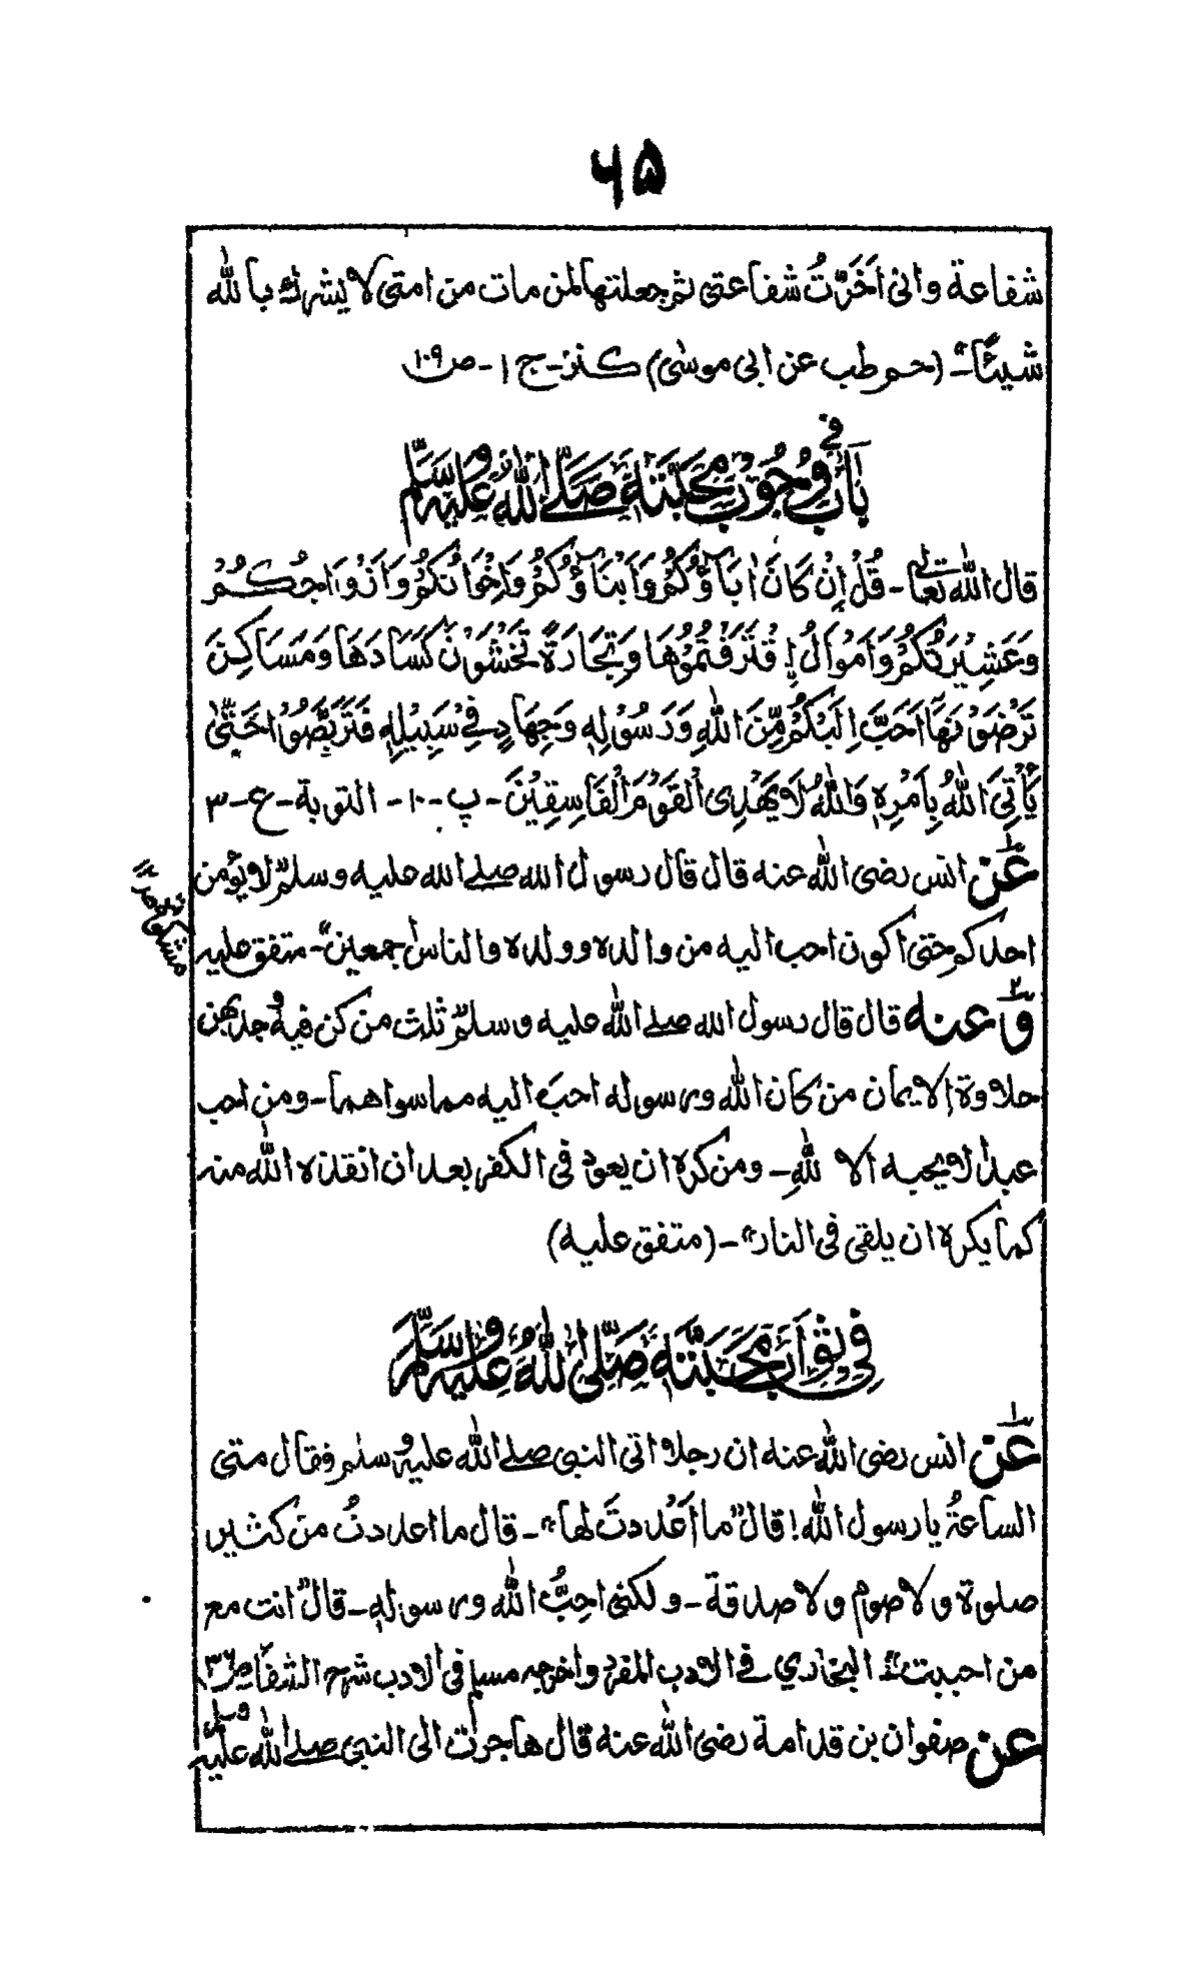 ۶۵
شفاعة وانی اَخَّرتُ شفاعتی ثم جعلتها لمن مات من امتی لا یشرك با لله
شیئًا"- (حم طب عن ابی موسٰی) کنز-ج ۱ - ص۱۰۹
بَابٌ فِی وُجُوْبِ مَحَبَّتِهٖ صَلَّے اللّٰهُ عَلَیْهِ وَسَلَّمَ
قال الله تعالے - قُلْ اِنْ کَانَ اٰبَآؤُکُمْ وَاَبْنَآؤُکُمْ وَاِخْوَانُکُمْ وَاَزْوَاجُکُمْ
وَعَشِیْرَتُکُمْ وَاَمْوَالُ ِۨاقْتَرَفْتُمُوْهَا وَتِجَارَةٌ تَخْشَوْنَ کَسَادَهَا وَمَسَاکِنَ
تَرْضَوْنَهَا اَحَبَّ اِلَیْکُمْ مِّنَ اللّٰهِ وَرَسُوْلِهٖ وَجِهَادٍ فِیْ سَبِیْلِهٖ فَتَرَبَّصُوْا حَتّٰی
یَاْتِیَ اللّٰهُ بِاَمْرِهٖ وَاللّٰهُ لَا یَهْدِی الْقَوْمَ الْفَاسِقِیْنَ - پ - ۱۰ - التوبة - ع - ۳
عَن انس رضی الله عنه قال قال رسول الله صلے الله علیه وسلم "لا یؤمن
احدکم حتی اکون احب الیه من والده وولده والناس اجمعین"- متفق علیه
مشکوٰة
وَعنه قال قال رسول الله صلے الله علیه وسلم "ثلث من کن فیه وجد بهن
حلاوة الایمان من کان الله ورسوله احبَّ الیه مما سواهما - ومن احب
عبدا لا یحبه الا لله - ومن کره ان یعود فی الکفر بعد ان انقذه الله منه
کما یکره ان یلقی فی النار" - (متفق علیه)
فِی ثَوَابِ مَحَبَّتِهٖ صَلَّی اللّٰهُ عَلَیْهِ وَسَلَّمَ
عَن انس رضی الله عنه ان رجلا اتی النبی صلے الله علیه وسلم فقال متی
الساعةُ یا رسول الله! قال "ما اَعْددتَ لها" - قال ما اعددتُ من کثیر
صلوة ولا صوم ولا صدقة - ولکنی احِبُّ الله ورسولهٖ - قال "انت مع
من احببت" البخاری فی الادب المفرد واخرجه مسلم فی الادب شرح الشفا
عن صفوان بن قدامة رضی الله عنه قال هاجرت الی النبی صلے الله علیه وسلم